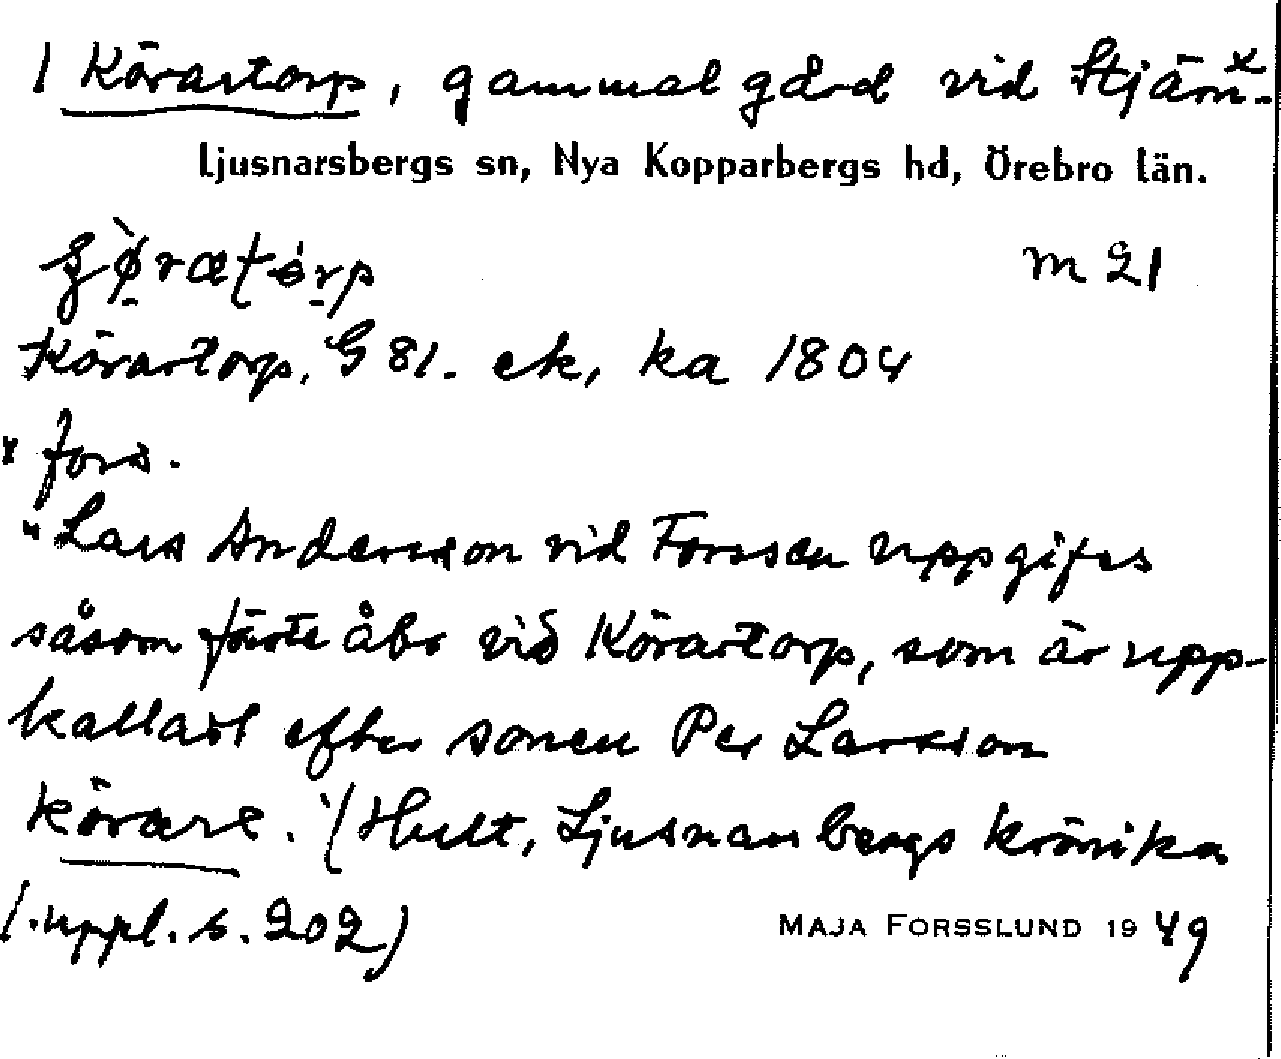 1 Körartorp, gammal gård vid Stjärn-ˣ
Ljusnarsbergs sn, Nya Kopparbergs hd, Örebro län.
m 21
Körartorp, G 81. ek, ka 1804
ˣ fors.
"Lars Andersson vid Forssen uppgifes
såsom förste åbo vid Körartorp, som är upp-
kalladt efter sonen Per Larsson
Körare." (Hult, Ljusnarsbergs krönika
1. uppl. s. 202)
MAJA FORSSLUND 1949